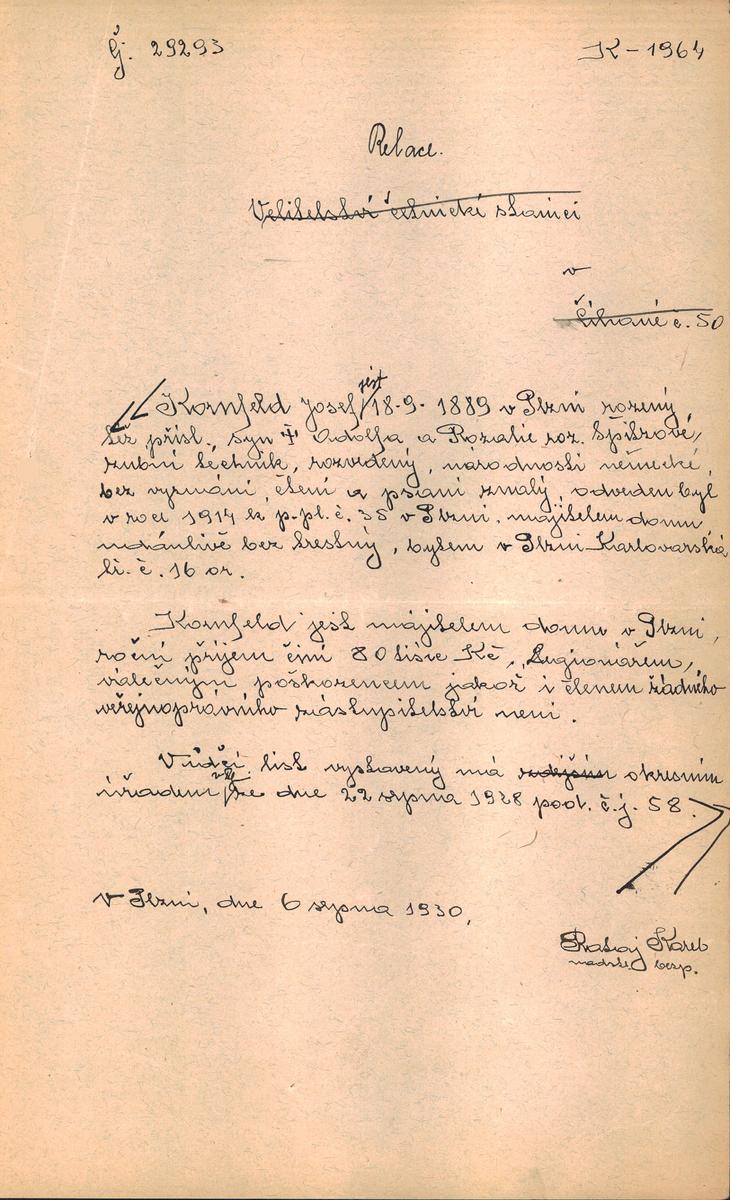 Čj. 29293 K – 1964
Relace.
Velitelství četnické stanici
v
Číhané č. 50
jest
Kornfeld Josef 18.9. 1889 v Plzni rozený
též přísl., syn † Adolfa a Rozalie roz. Spitzové,
zubní technik, rozvedený, národnosti německé,
bez vyznání, čtení a psaní znalý, odveden byl
v roce 1914 k p. pl. č. 35 v Plzni, majitelem domu,
udánlivě bez trestný, bytem v Plzni Karlovarská
tř. č. 16 or.
Kornfeld jest majitelem domu v Plzni,
roční příjem činí 80 tisíc Kč, Legionářem,
válečným poškozencem jakož i členem žádného
veřejnoprávního zástupitelství není.
Vůdčí list vystavený má zdejším okresním
úřadem ze dne 22 srpna 1928 pod. č.j. 58.
V Plzni, dne 6 srpna 1930,
Karel